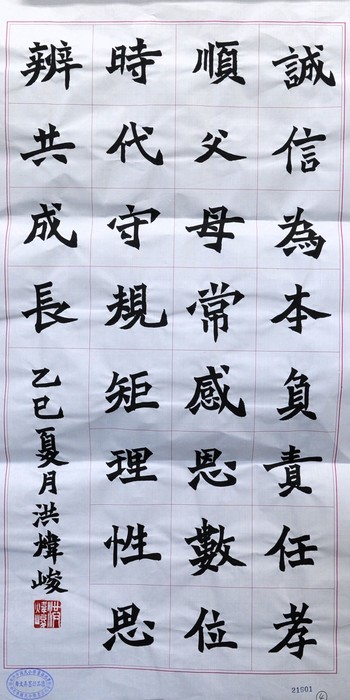 誠信為本負責任孝
順父母常感恩數位
時代守規矩理性思
辨共成長
乙巳夏月洪煒峻
21601